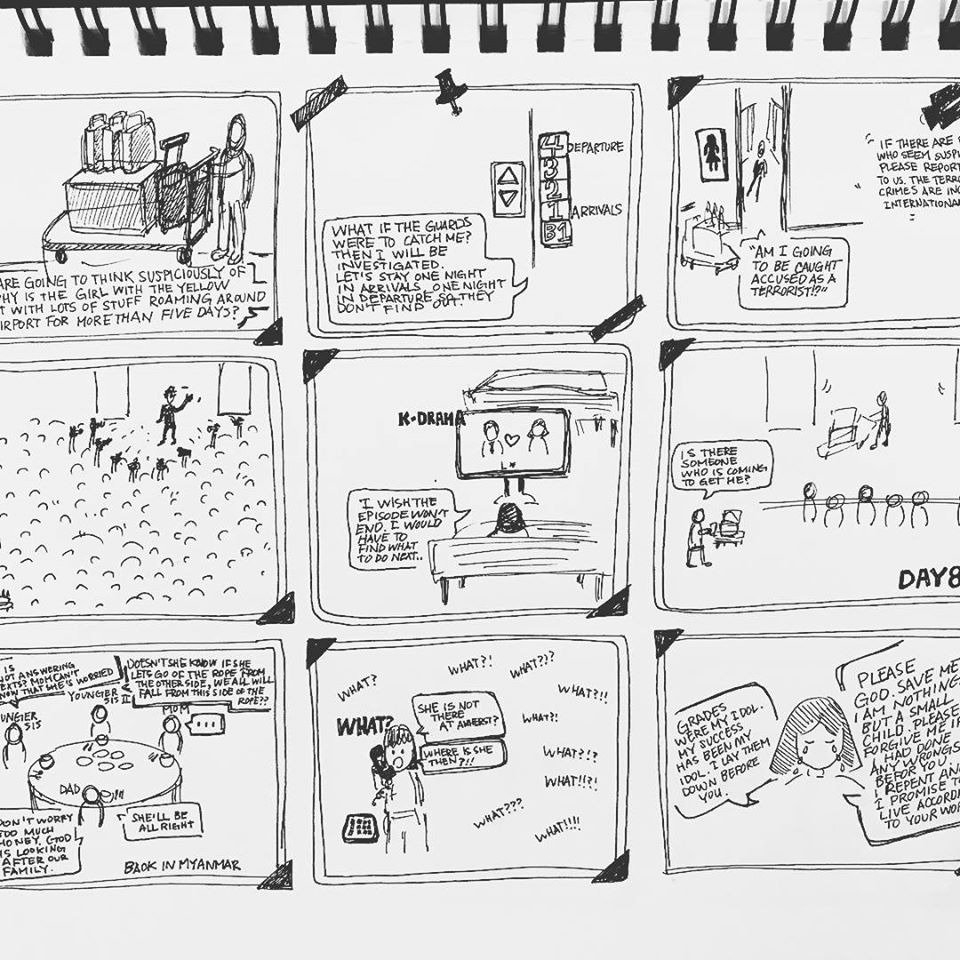 ARE GOING TO THINK SUSPICIOUSLY OF
HY IS THE GIRL WITH THE YELLOW
T WITH LOTS OF STUFF ROAMING AROUND
IRPORT FOR MORE THAN FIVE DAYS?
4 DEPARTURE
3
2
1 ARRIVALS
B1
WHAT IF THE GUARDS
WERE TO CATCH ME?
THEN I WILL BE
INVESTIGATED.
LET'S STAY ONE NIGHT
IN ARRIVALS, ONE NIGHT
IN DEPARTURE SO THEY
DON'T FIND OUT.
"IF THERE ARE
WHO SEEM SUSP
PLEASE REPORT
TO US. THE TERRO
CRIMES ARE INC
INTERNATIONA
"AM I GOING
TO BE CAUGHT
ACCUSED AS A
TERRORIST!?"
K-DRAMA
I WISH THE
EPISODE WON'T
END. I WOULD
HAVE TO
FIND WHAT
TO DO NEXT..
IS THERE
SOMEONE
WHO IS COMING
TO GET ME?
DAY 8
IS
NOT ANSWERING
TEXTS? MOM CAN'T
KNOW THAT SHE IS WORRIED
DOESN'T SHE KNOW IF SHE
LETS GO OF THE ROPE FROM
THE OTHER SIDE, WE ALL WILL
FALL FROM THIS SIDE OF THE
ROPE??
UNGIER
SIS
YOUNGIER
SIS II
MOM
...
DAD
DON'T WORRY
TOO MUCH
HONEY. GOD
IS LOOKING
AFTER OUR
FAMILY.
SHE'LL BE
ALL RIGHT
BACK IN MYANMAR
WHAT?
WHAT?!
WHAT???
WHAT?!!
WHAT?
SHE IS NOT
THERE
AT AMHERST?
WHERE IS SHE
THEN?!!
WHAT?!
WHAT?!?
WHAT!!?!
WHAT???
WHAT!!!!
GRADES
WERE MY IDOL.
MY SUCCESS
HAS BEEN MY
IDOL. I LAY THEM
DOWN BEFORE
YOU.
PLEASE
GOD. SAVE ME
I AM NOTHING
BUT A SMALL
CHILD. PLEASE
FORGIVE ME IF
I HAD DONE
ANY WRONGS
BEFOR YOU.
I REPENT AN
I PROMISE TO
LIVE ACCORD
TO YOUR WO